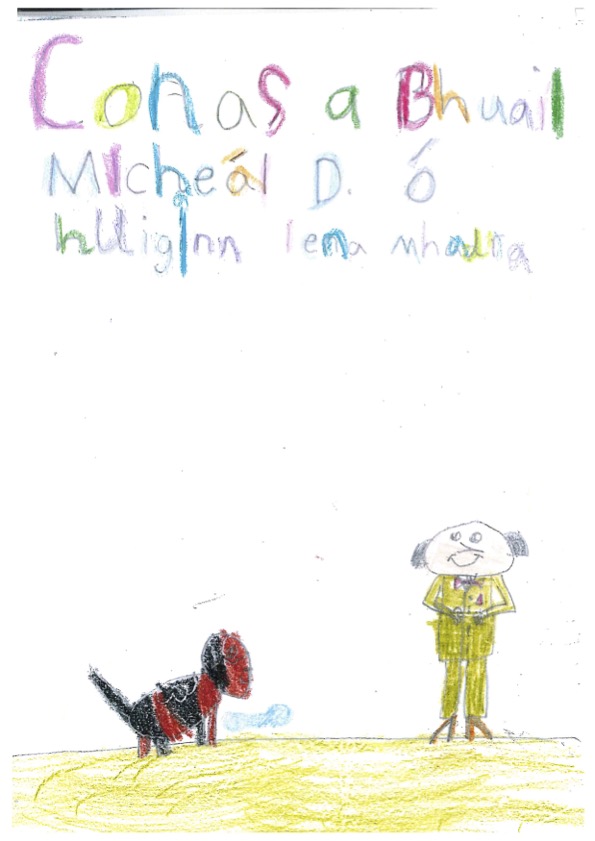 Conas a Bhuail
Mícheál D. Ó
hUiginn lena mhadra